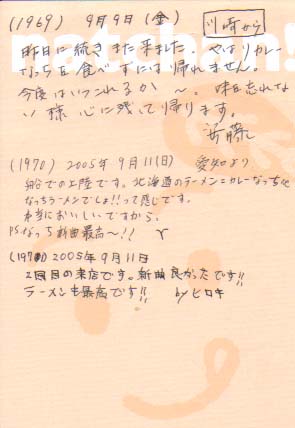 (1969) 9月9日(金) 川崎から
natchan!
昨日に続きまた来ました。やはりカレー
なっちを食べずには帰れません。
今度はいつこれるか〜。味を忘れな
い様 心に残して帰ります。
斉藤
(1970) 2005年9月11(日) 愛知より
船での上陸です。北海道のラーメン=カレーなっち
なっちラーメンでしょ!!って感じです。
本当においしいですから。
PSなっち新曲最高〜!!
(1971) 2005年9月11日
2回目の来店です。新曲良かったです!!
ラーメンも最高です!! by ヒロキ